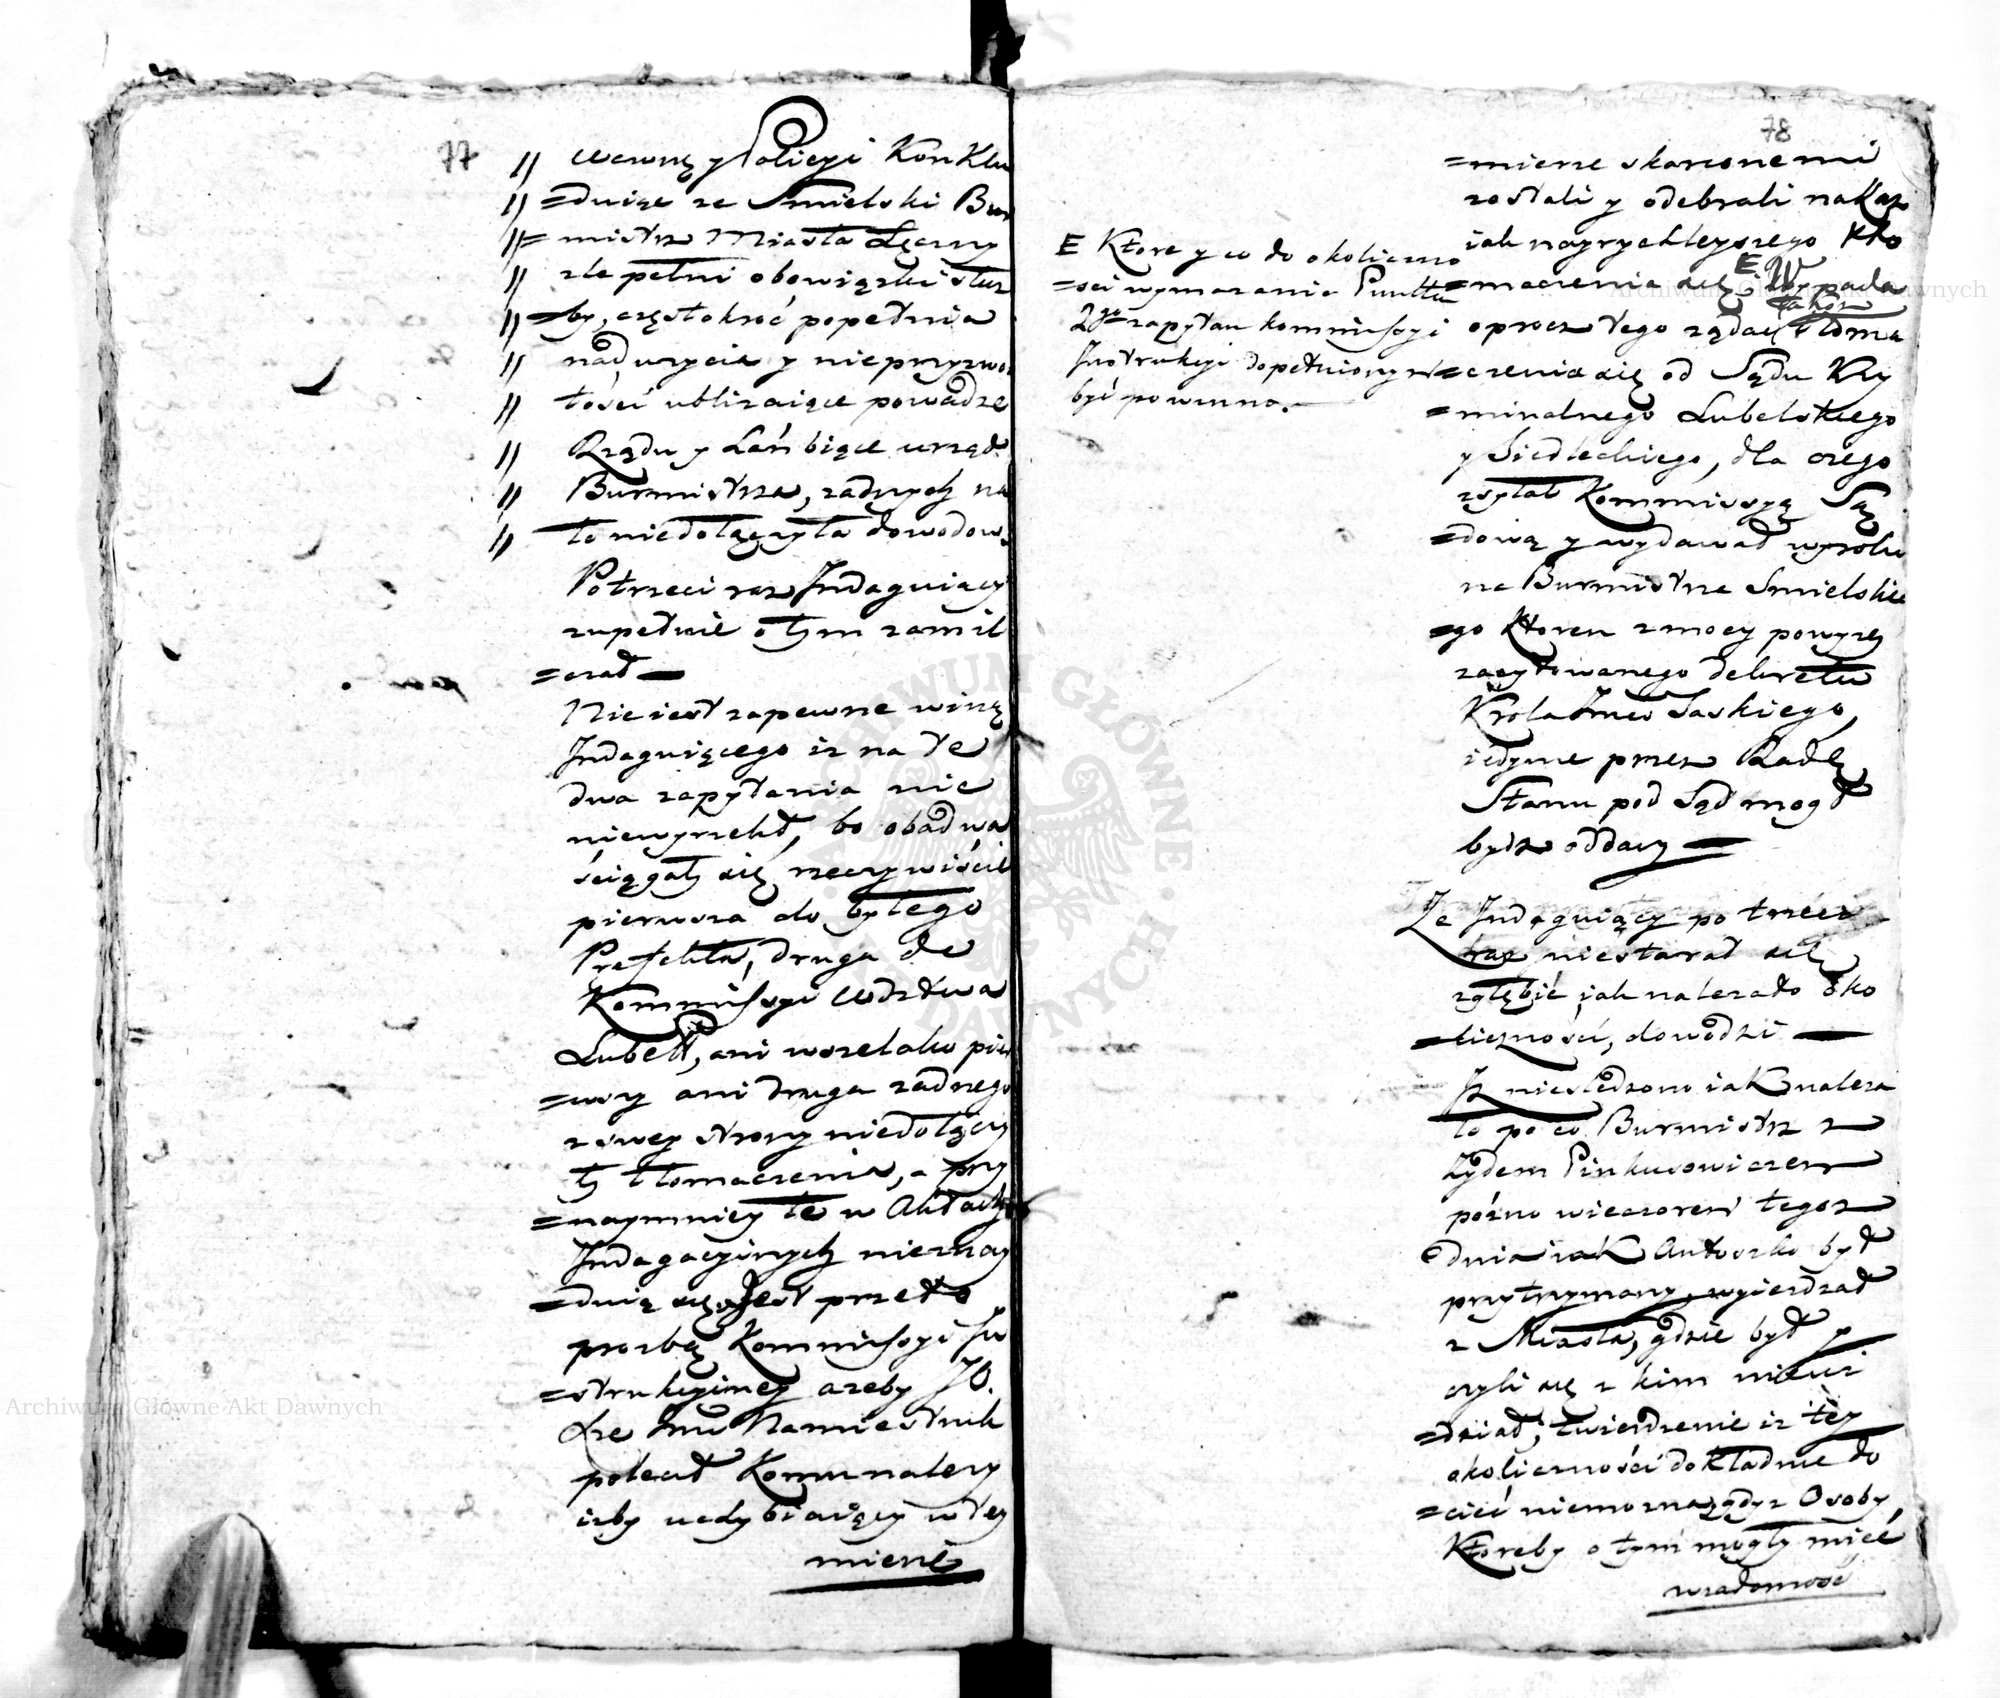 77
// wewnę y Policyi Konklu
// =duiąc że Smielski Bur
//= mistrz Miasta Łęczny
// zle pełni obowiązki służ
// =by, częstokroć popełnia
// nadużycia y nieprzyzwoi
// tości ubliżaiące powadze
// Rządu y hańbiące urząd
// Burmistrza, żadnych na
// to niedołączyła dowodow.
Potrzeci raz Indaguiący
zupełnie o tym zamil
=czał —
Nie iest zapewne winą
Indaguiącego iż na te
dwa zapytania nic
niewyrzekł, bo obadwa
ściągały się rzeczywiście
pierwsza do byłego
Prefekta, druga do
Kommissyi Wdztwa
Lubell, ani wszelako pier
=wszy ani druga żadnego
z swey strony niedołączy
ły tłomaczenia, a przy
=naymniey te w Aktach
Indagacyinych nieznay
=duią się. Jest przeto
prozbą Kommissyi In
=strukcyiney ażeby JO.
Xże Jmć Namiestnik
polecił Komu należy
iżby uchybiaiący w tey
mierze
78
=mierze skarconemi
zostali y odebrali nakaz
iak nayrychleyszego tło
=maczenia się E Wypada
także
oprocz tego żądać tłoma
=czenia się od Sądu Kry
=minalnego Lubelskiego
y Siedleckiego, dla czego
zsyłał Kommissyą Są
=dową y wydawał wyroki
na Burmistrza Smielskie
=go ktoren z mocy powyżey
zacytowanego dekretu
Krola Jmci Saskiego,
iedynie przez Radę
Stanu pod Sąd mogł
bydz oddany —
E Ktore y co do okoliczno
=sci wymazania Punktu
2go zapytan kommissyi
Instrukcyi dopełnionym
być powinno. —
Że Indaguiący po trzeci
raz niestarał się
zgłębić iak należało oko
=liczności, dowodzi —
Iż nieśledzono iak należa
ło po co Burmistrz z
Żydem Pinkusowiczem
pózno wieczorem tegoż
dnia iak Antoszko był
przytrzymany, wyieżdżał
z Miasta, gdzie był y
czyli się z kim niewi
=dział, twierdzenie iż tey
okoliczności dokładnie do
=ciec niemożna, gdyż Osoby,
Ktoreby o tym mogły mieć
wiadomość